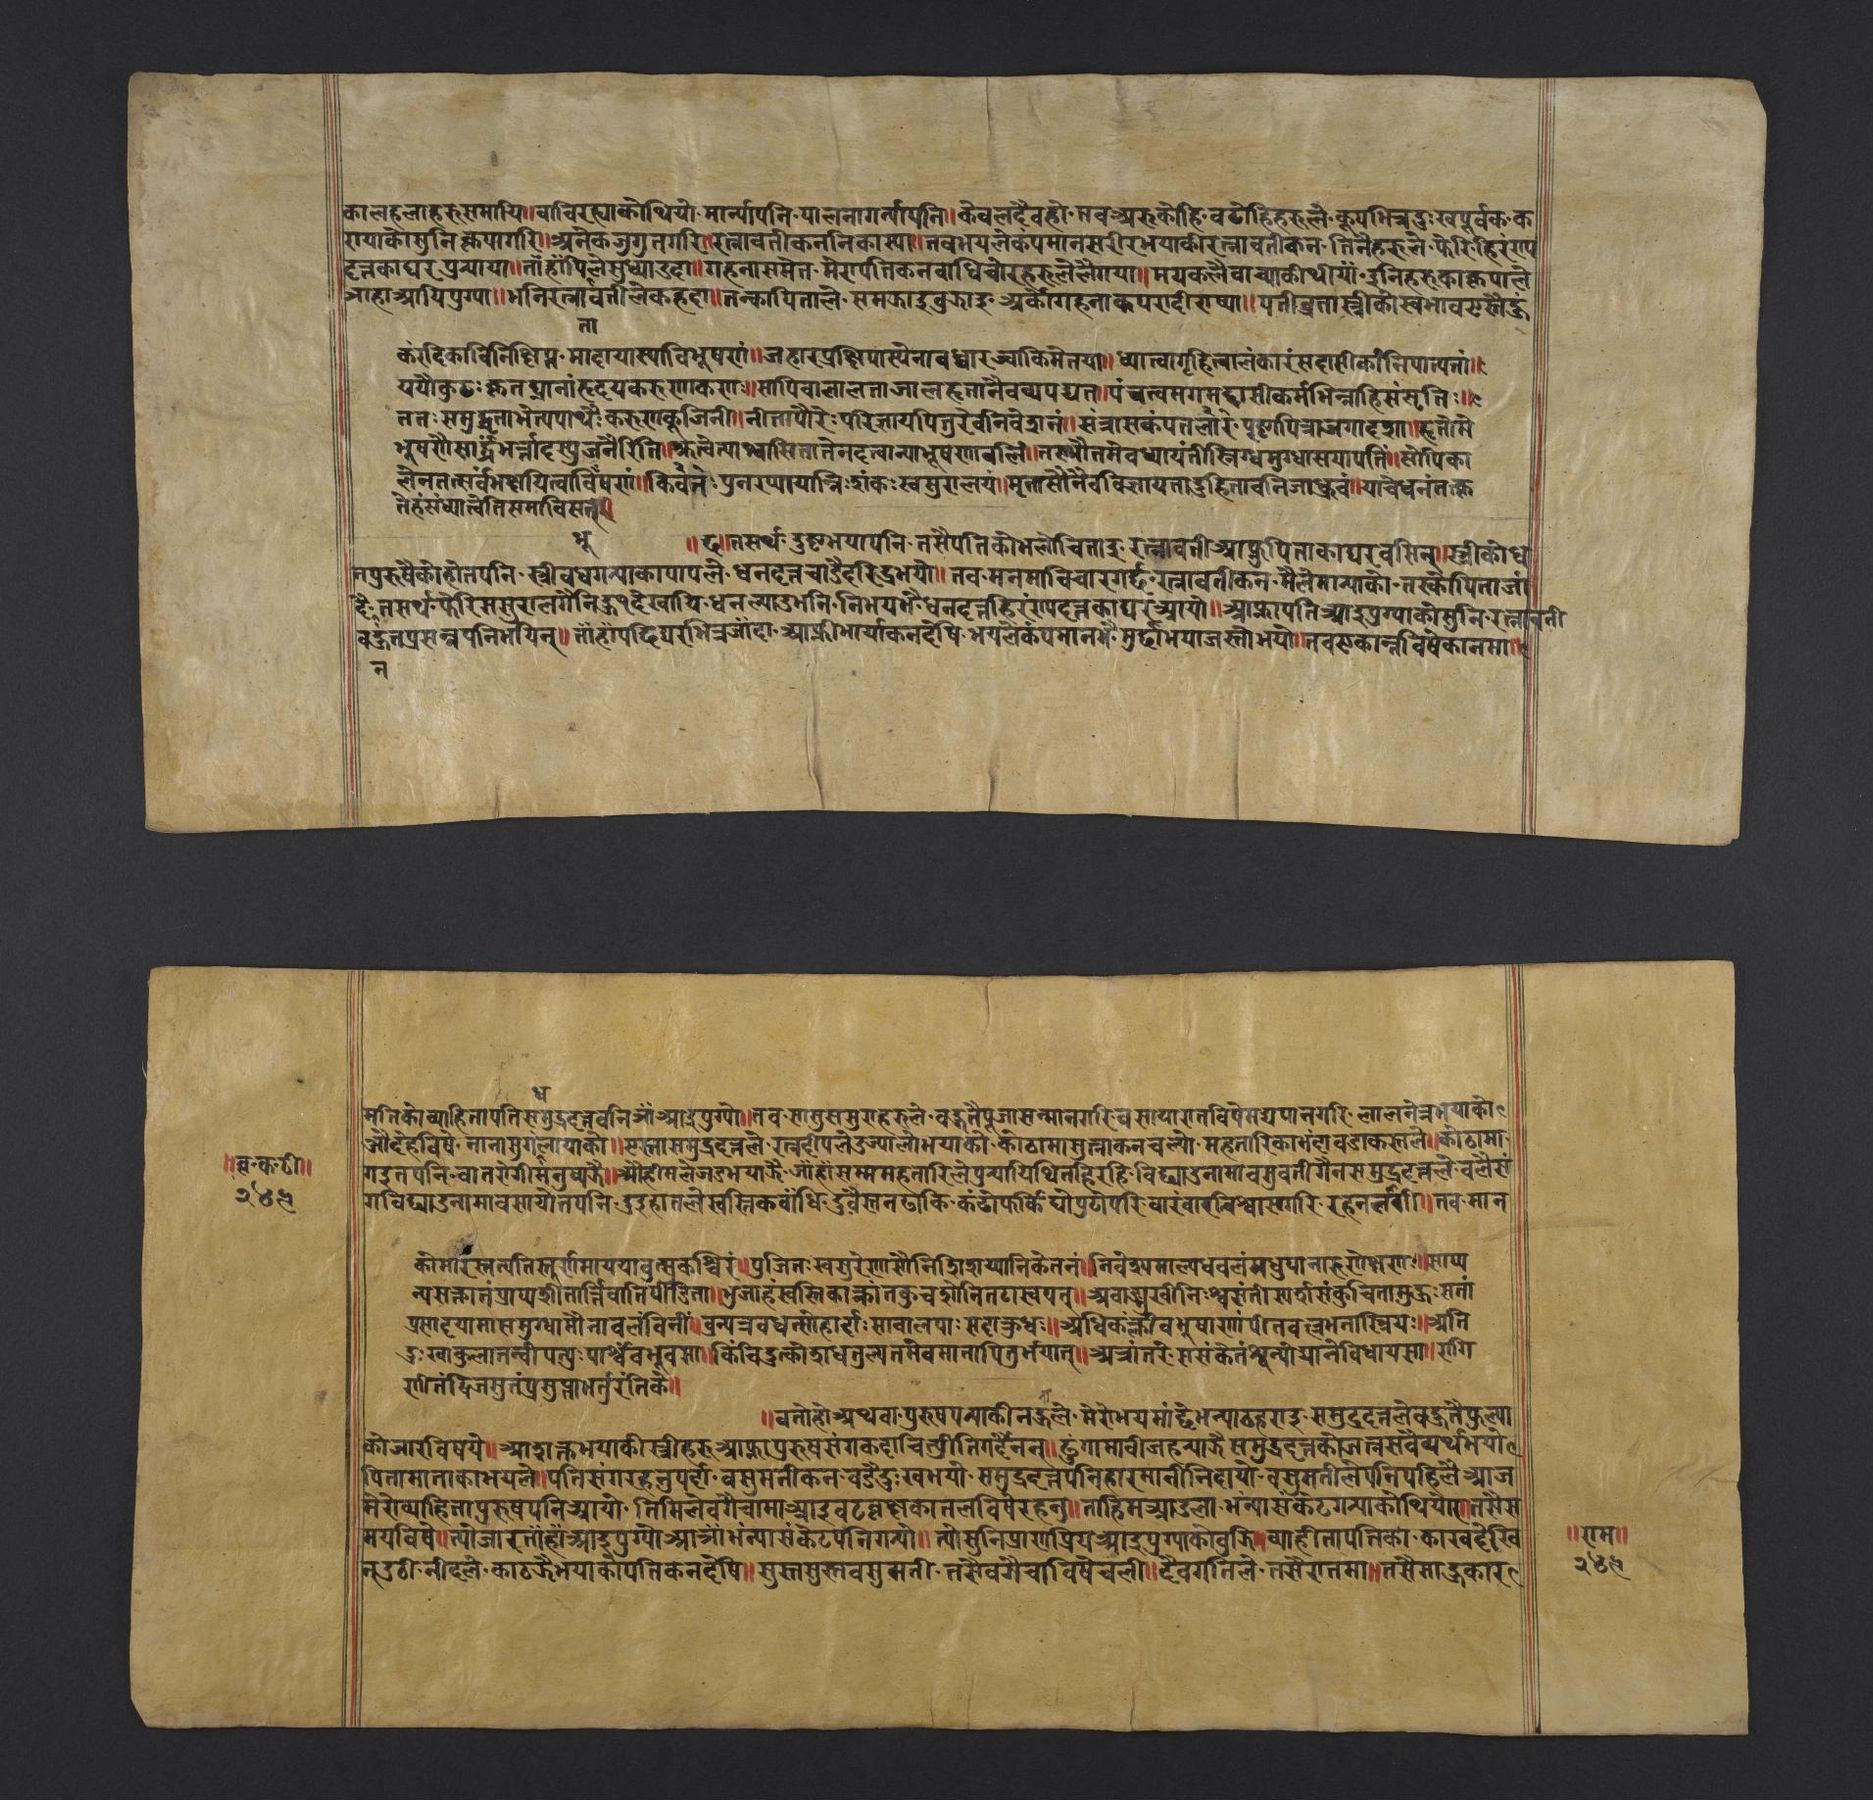 कालहलाहरुसमायि॥वाचिरह्याकोथियो॰मार्न्यापनि॰पालनागर्न्यापनि॥केवलदैवहो॰मवअरुकोहि॰वटोहिहरुले॰कूपभित्रदुःखपूर्वक॰क
रायाकोसुनि॰कृपागरि॥अनेकजुगुतगरि॥रत्नावतीकननिकास्या॥तवभयलेकंपमानसरीरभयाकीरत्नावतीकन॰तिनैहरुले॰फेरि॰हिरंण्य
दत्तकाघर॰पुर्‍याया॥ताँहाँपिलेसुध्याउदा॥गहनासमेत॰मेरापतिकनवाधिचोरहरुलेलैगया॥मयकलैवाच्याकीथीयाँ॰उनिहरुकाकृपाले
ञाहाआयिपुग्या॥भनिरत्नावतीलेकहदा॥तन्कापिताले॰समझाइवुझाइ॰अर्कोगहनाकपरादीराष्या॥पतीव्रतास्त्रीकोस्वभावयस्तैहुं
ता
कंरदिकाविनिक्षिप्न॰मादायास्याविभूषणं॥जहारप्रक्षिपास्येनावध्वारञ्चाकिमेतया॥ध्यात्वागृहित्वालंकारंसदासीकांनिपात्यतां॥
ययौकुटःकृतघ्नानांहृदयकरुणाकराः॥सापिवालालताजालहृतानैवव्यपद्यत॥पंचत्वमगमद्दासीकर्मभिन्नाहिसंसृतिः॥
ततःसमुद्धृताभेत्यपार्थैःकरुणकूजिनी॥नीतापौरैःपरिज्ञायपितुरेवनिवेशनं॥संत्रासकंपतलोरैःपृष्टापित्राजगादशा॥हृतोमे
भूषणैःसार्द्धंभर्त्तादस्पुजनैरिति॥श्रुत्वेत्याश्वासितातेनदत्वान्याभूषणावलिं॥तस्थौतमेवध्यायंतीस्निग्धमुग्धासयापतिं॥सोपिका
लेनतत्सर्वंभक्षयित्वाविभूषणं॥किर्वनं॰पुनरप्यायान्निःशंकःश्वसुरालयं॥मृतासौनैवविज्ञायतादुहितावनिजाध्रुवं॥याचेधनंतत्कृ
तेहंसंध्यात्वेतिसमाविसत्॥
भू
॥छ॥तसर्थ॰दुष्टभयापनि॰तसैपतिकोभलोचिताइ॰रत्नावतीआफ्नुपिताकाघरवसिन्॥स्त्रीकोध
नपुरुषैकोहोतपनि॰स्त्रीवधगर्‍याकापापले॰धनदत्तचाडैदरिद्रभयो॥तव॰मनमाविचारगर्छ॰रत्नावतीकन॰मैलेमार्‍याको॰तस्कैपिताजां
दै॰तसर्थ॰फेरिससुरालगैनिहुं१देखायि॰धनल्याउभनि॰निभयभै॰धनदत्तहिरंण्यदत्तकाघरआयो॥आफ्नापतिआइपुग्याकोसुनि॰रत्नावती
वहुतप्रसन्नपनिभयिन्॥ताँहाँपछिघरभित्रजाँदा॰आफ्नीभार्याकनदेषि॰भयलेकंपमानभै॰मुर्छाभयाजस्तोभयो॥तवएकान्तविषेकानमा॥
न
ध
मतिकोव्याहितापतिसमुद्रदत्तवनिञाँआइपुग्यो॥तव॰सासुससुराहरुले॰वहुतैपूजासन्मानगरि॰धसायारातविषेमद्यपानगरि॰लालनेत्रभयाको
औदेहविषे॰नानासुगंलायाको॥यस्तासमुद्रदत्तले॰रत्नदीपलेउज्यालोभयाको॰कोठामासुत्नाकनचल्यो॰महतारिकाभंन्यावडाकस्तले॥कोठामा
॥वृ॰क॰टी॥
गइनपनि॰वातरोगीमनुष्यझैं॥औहीमलेजडभयाझैं॰जाँहाँसम्ममहतारिलेपुर्‍यायिथितहिरहि॰विछ्याउनामावसुवतीगैनसमुद्रदत्तले॰वलैसं
२४९
गविछ्याउनामावसायोतपनि॰दुइहातलेस्वस्तिकवांधि॰दुवैस्तनढाकि॰कंठोफर्किंघोपुटोपरि॰वारंवारविश्वासगरि॰रहनलागी॥तव॰मान
कोमारंस्तत्पतिस्तूर्णमाययावुत्सुकश्चिरं॥पुजितःस्वसुरेणासौनिशिशय्यानिकेतनं॥निवेश्यमाल्यधवलंमधुपानारुणेक्षणः॥साप्य
न्यसक्तातंप्राप्यशीतार्त्तेवातिपीडिता॥भुजाहंस्वस्तिकाक्लांतकुचश्रोनितटास्वयत्॥अवाङ्मुखीनिःश्वसंतीस्पर्शासंकुचितामुहुःसतां
प्रसादयामासमुग्धामौनावलंविनीं॥वन्यत्रवधत्सौहार्दाःसावालपाःसदाक्रुधः॥अधिकंक्लीवभुषाणांपीतवल्लभनास्त्रियः॥अति
दुःखाकुलातन्वीपत्युःपार्श्वेवभूवसा॥किंचिदुत्कोशधतुल्यतमेवमानापितुर्भयात्॥अत्रांतरेससंकेतंशून्योद्यानेविधायसा॥रागि
णीतंद्विजसुतंप्रसुप्ताभर्तुरंतिके॥
॥वतोहोअथवा॰पुरुषपन्याकीनहुले॰मेरोभयमांछेभन्याठहराइ॰समुद्रदत्तलेवहुतैफुल्या
कोजारविषये॥आशक्तभयाकीस्त्रीहरुआफ्नापुरुषसंगकदाचित्प्रीतिगर्दैनन्॥ढुंगामावीजहर्‍याझैंसमुद्रदत्तकोजत्नसवैव्यर्थभयो
पितामाताकाभयले॥पतिसंगरहनुपर्दा॰वसुमतीकन॰वडैदुःखभयो॰समुद्रदत्तपनिहारमानीनिदायो॰वसुमतीलेपनिपहिलै॰आज
मेरोव्याहितापुरुषपनिआयो॰तिमिलेवगैचामाआइवटवृक्षकातलविषेरहनु॥ताहिमआउला॰भन्यासंकेटगर्‍याकोथियो॥तसैस
मयविषे॥त्योजारताँहाँआइपुग्योआञाँभंन्यासंकेटपनिगर्‍यो॥त्योसुनिप्राणप्रियआइपुग्याकोवुझि॥व्याहीतापतिको॰कारवदेखि
॥राम॥
नउठी॰नीदले॰काठझैंभयाकोपतिकनदेषि॥सुस्तसुस्तवसुमती॰तसैवगैचाविषेचली॥दैवगतिले॰तसैरातमा॥तसैमाहुकार
२४९